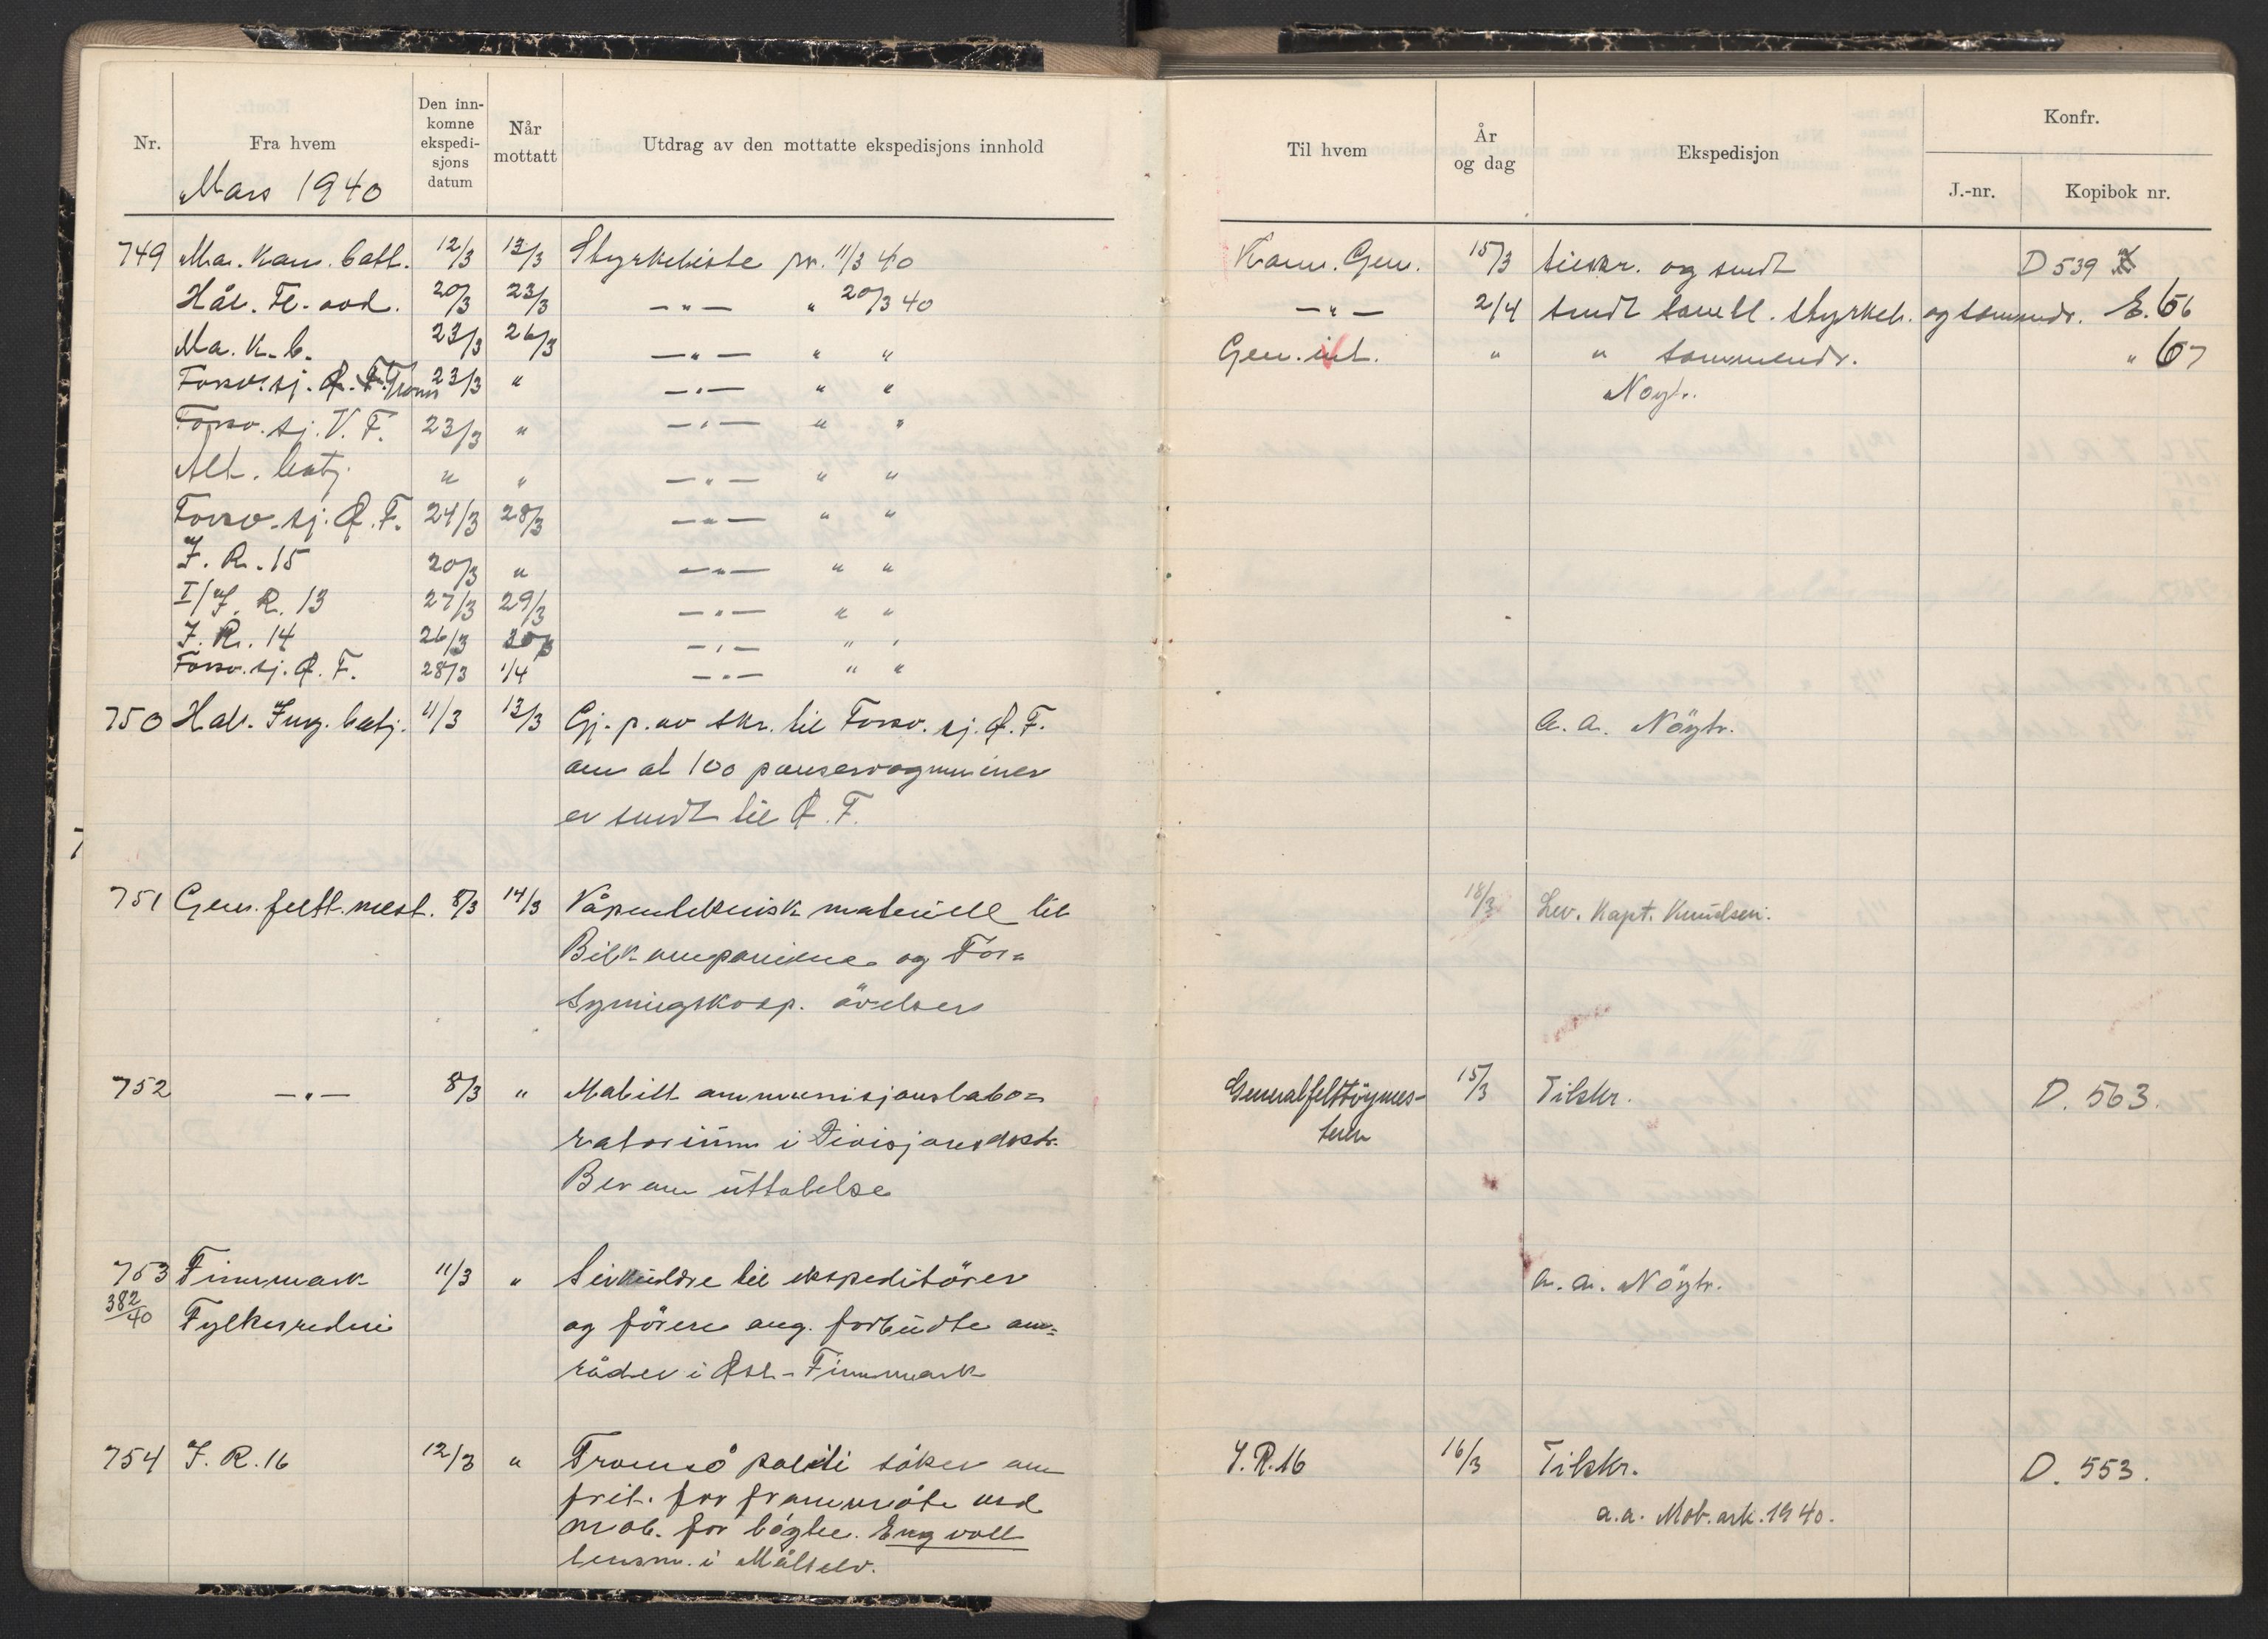 Nr.
Fra hvem
Den inn-
komne
ekspedi-
sjons
datum
Når
mottatt
Utdrag av den mottatte ekspedisjons innhold
Mars 1940
749 Ma. Kan. batt. 12/3 13/3 Styrkeliste pr. 11/3 40
Hål. Fl. avd. 20/3 23/3 — " — " 20/3 40
Ma. K. b. 23/3 26/3 — " — " "
Forsv. sj. Ø. F. Troms 23/3 " — " — " "
Forsv. sj. V. F. 23/3 " — " — " "
Alt. batj. " " — " — " "
Forsv. sj. Ø. F. 24/3 28/3 — " — " "
I. R. 15 20/3 " — " — " "
I/I. R. 13 27/3 29/3 — " — " "
I. R. 14 26/3 30/3 — " — " "
Forsv. sj. Ø. F. 28/3 1/4 — " — " "
750 Hål. Ing. batj. 11/3 13/3 Gj. p. av skr. til Forsv. sj. Ø. F.
om at 100 panservognminer
er sendt til Ø. F.
751 Gen. felt. mest. 8/3 14/3 Våpenteknisk materiell til
Bilkompaniene og For=
syningskosp. övelser
752 — " — 8/3 " Mobilt ammunisjonslabo=
ratorium i Divisjonsdistr.
Ber om üttalelse
753 Finnmark 11/3 " Sirkulære til ekspeditörer
382/40 Fylkesrederi og förere ang. forbüdte om=
råder i Øst-Finnmark
754 I. R. 16 12/3 " Tromsö politi söker om
frit. for frammöte ved
mob. for lögtn. Engvoll
lensm. i Målselv.
Til hvem
År
og dag
Ekspedisjon
Konfr.
J.-nr.
Kopibok nr.
Komm. Gen. 15/3 tilskr. og sendt D 539
— " — 2/4 sendt saml. styrkel. og sammendr. E. 656
Gen. int. " " sammendr. " 657
Nøytr.
a. a. Nöytr.
18/3 Lev. Kapt. Knudsen.
Generalfelttöymes- 15/3 Tilskr. D. 563.
teren
a. a. Nöytr.
I. R. 16 16/3 Tilskr. D. 553.
a. a. Mob. ark. 1940.